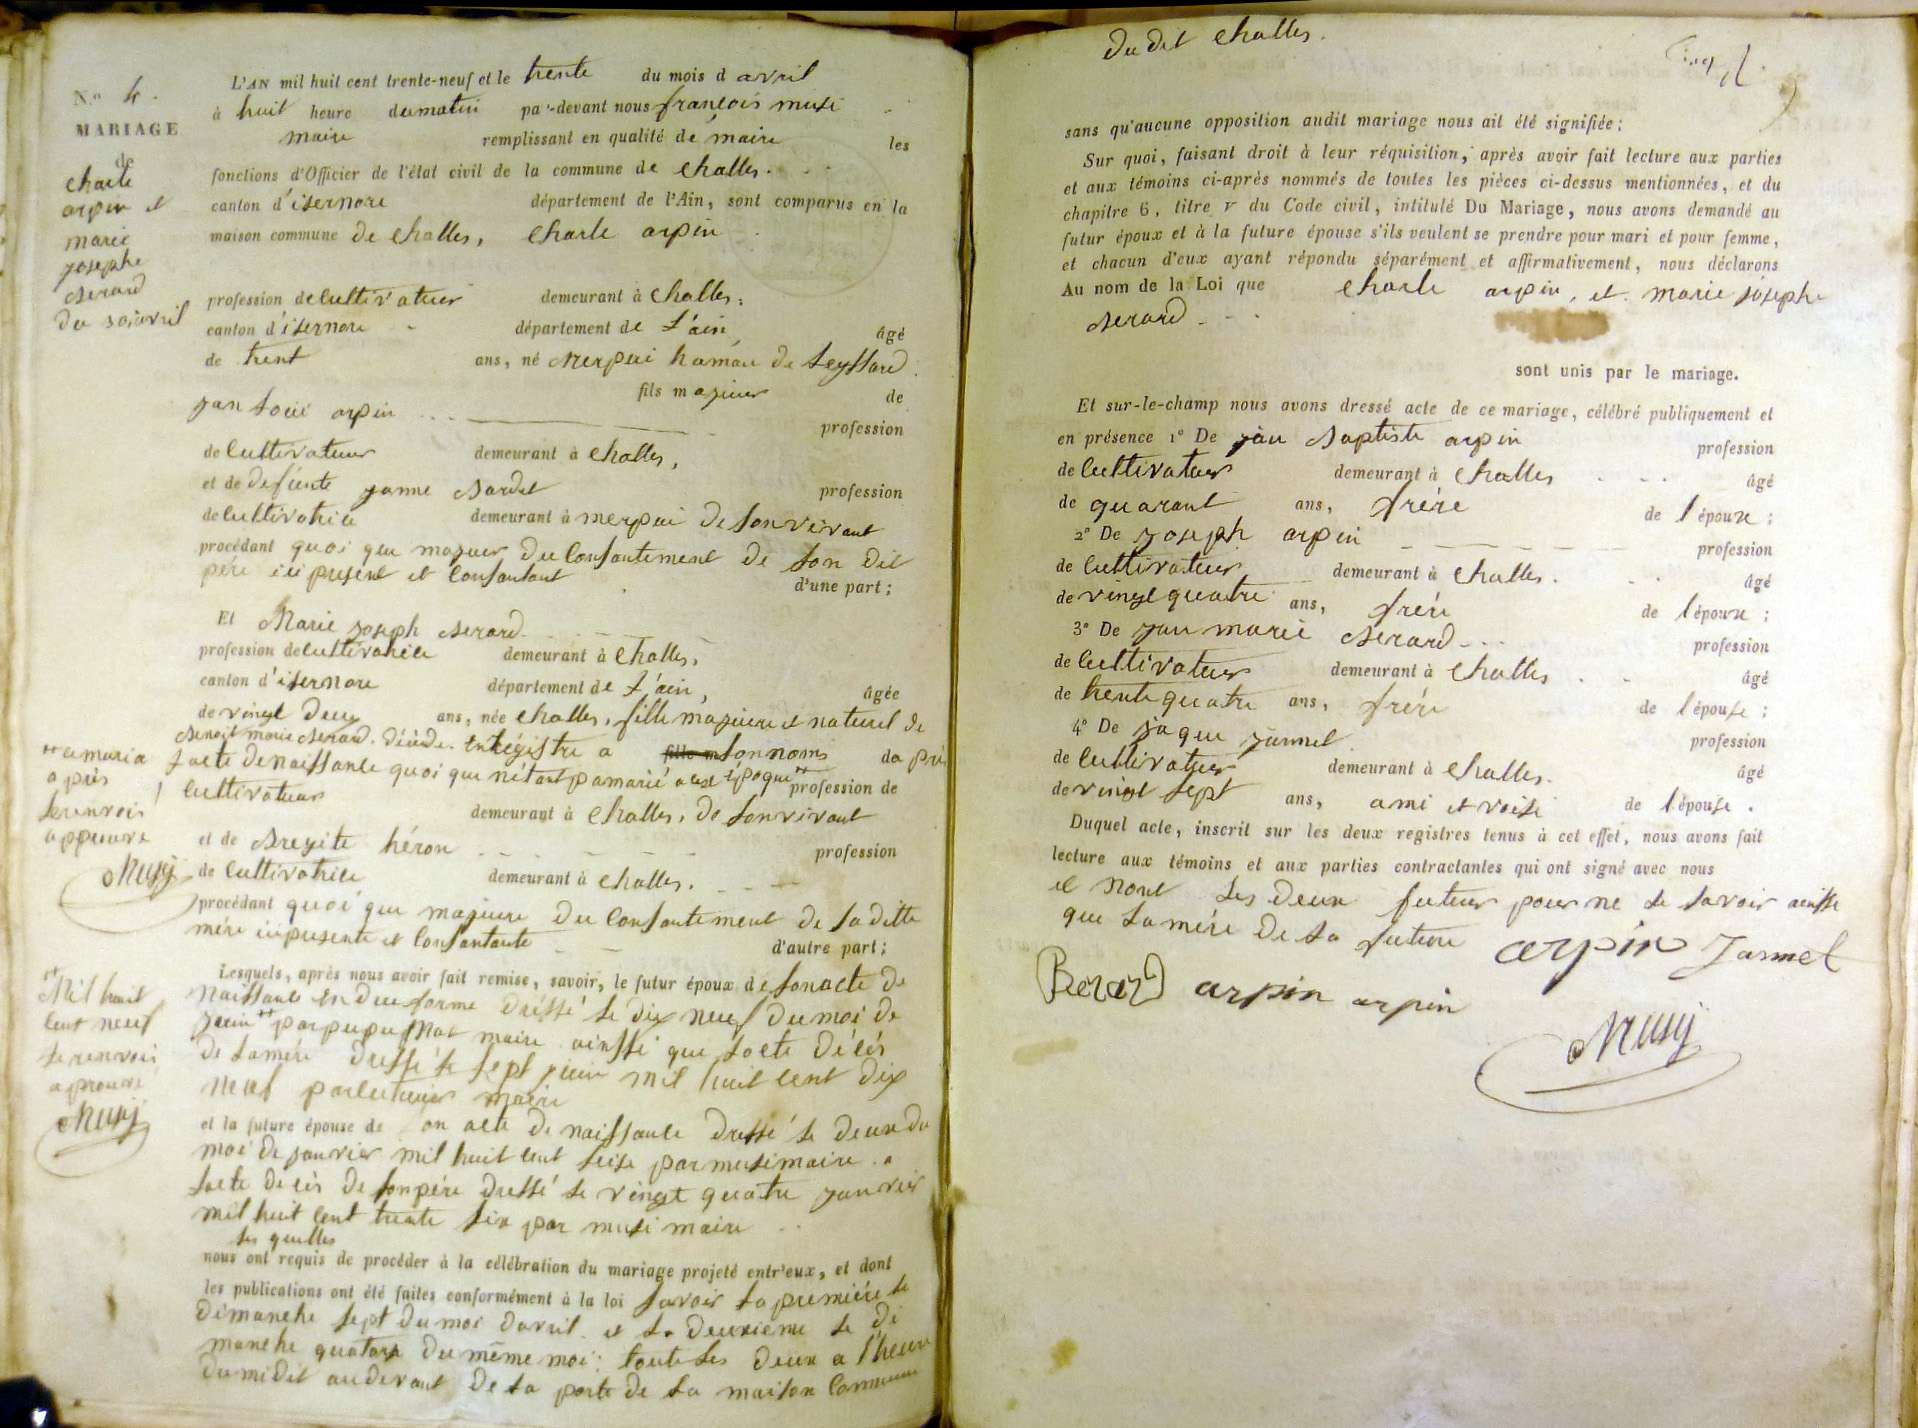 N.º 4.
MARIAGE
de
charle
arpin et
marie
josephe
Berard
du 30 avril
L'AN mil huit cent trente-neuf et le trente du mois d avril
à huit heure du matin pa^r-devant nous françois musi
maire remplissant en qualité de maire les
fonctions d'Officier de l'état civil de la commune de challes.
canton d'isernore département de l'Ain, sont comparus en la
maison commune de challes, charle arpin
profession de cultivateur demeurant à challes,
canton d'isernore département de l'ain, âgé
de trent ans, né merpui hamau de leyssard
fils majeur de
jan loui arpin profession
de cultivateur demeurant à challes,
et de defiente janne Bardet profession
de cultivatrice demeurant à merpui de son vivant
procédant quoi que majeur du consantement de son dit
pére ici présent et consantant d'une part;
Et Marie joseph Berard
profession de cultivatrice demeurant à challes,
canton d'isernore département de l'ain, âgée
de vingt deux ans, née challes, fille majeure et naturel de
Benoit marie Berard. décédé. enregistre a son nom da pré
l'acte de naissance quoi que nétant pa marié a cest époque profession de
cultivateur
demeurant à challes, de son vivant
et de Bregite héron profession
de cultivatrice demeurant à challes.
procédant quoi que majeure du consantement de sa ditte
mére ici présente et consantante d'autre part;
a maria
a prés
le renvois
appreuvé
Musy
Lesquels, après nous avoir fait remise, savoir, le futur époux de son acte de
naissance en due forme dréssé le dix neuf du moi de
par pupunat maire ainssi que l'acte décés
de sa mére dressé le sept juin mil huit cent dix
neuf par maire
Mil huit
cent neuf
le renvoi
aprouvé
Musy
et la future épouse de on acte de naissance dressé le deux du
moi de janvier mil huit cent seise par musi maire. a
l'acte decés de son pére dressé le vingt quatre janvier
mil huit cent trente six par musi maire
les quelles
nous ont requis de procéder à la célébration du mariage projeté entr'eux, et dont
les publications ont été faites conformément à la loi savoir la premiére le
dimanche sept du moi davril. et la deuxieme le di
manche quatorse du même moi: toute les deux a l'heure
du midit audevant de la porte de la maison commune
du dit challes.
sans qu'aucune opposition audit mariage nous ait été signifiée;
Sur quoi, faisant droit à leur réquisition, après avoir fait lecture aux parties
et aux témoins ci-après nommés de toutes les pièces ci-dessus mentionnées, et du
chapitre 6, titre v du Code civil, intitulé Du Mariage, nous avons demandé au
futur époux et à la future épouse s'ils veulent se prendre pour mari et pour femme,
et chacun d'eux ayant répondu séparément et affirmativement, nous déclarons
Au nom de la Loi que charle arpin, et marie josephe
Berard
sont unis par le mariage.
Et sur-le-champ nous avons dressé acte de ce mariage, célébré publiquement et
en présence 1º De jan Baptiste arpin profession
de cultivateur demeurant à challes âgé
de quarant ans, frére de l'époux;
2º De joseph arpin profession
de cultivateur demeurant à challes. âgé
de vingt quatre ans, frére de l'époux;
3º De jan marie Berard profession
de cultivateur demeurant à challes âgé
de trente quatre ans, frére de l'épouse;
4º De jaque jannel profession
de cultivateur demeurant à challes. âgé
de vingt sept ans, ami et voisi de l'épouse.
Duquel acte, inscrit sur les deux registres tenus à cet effet, nous avons fait
lecture aux témoins et aux parties contractantes qui ont signé avec nous
et nont les deux future pour ne le savoir ainsse
que la mére de la future arpin Jannel
Berard arpin arpin
Musy